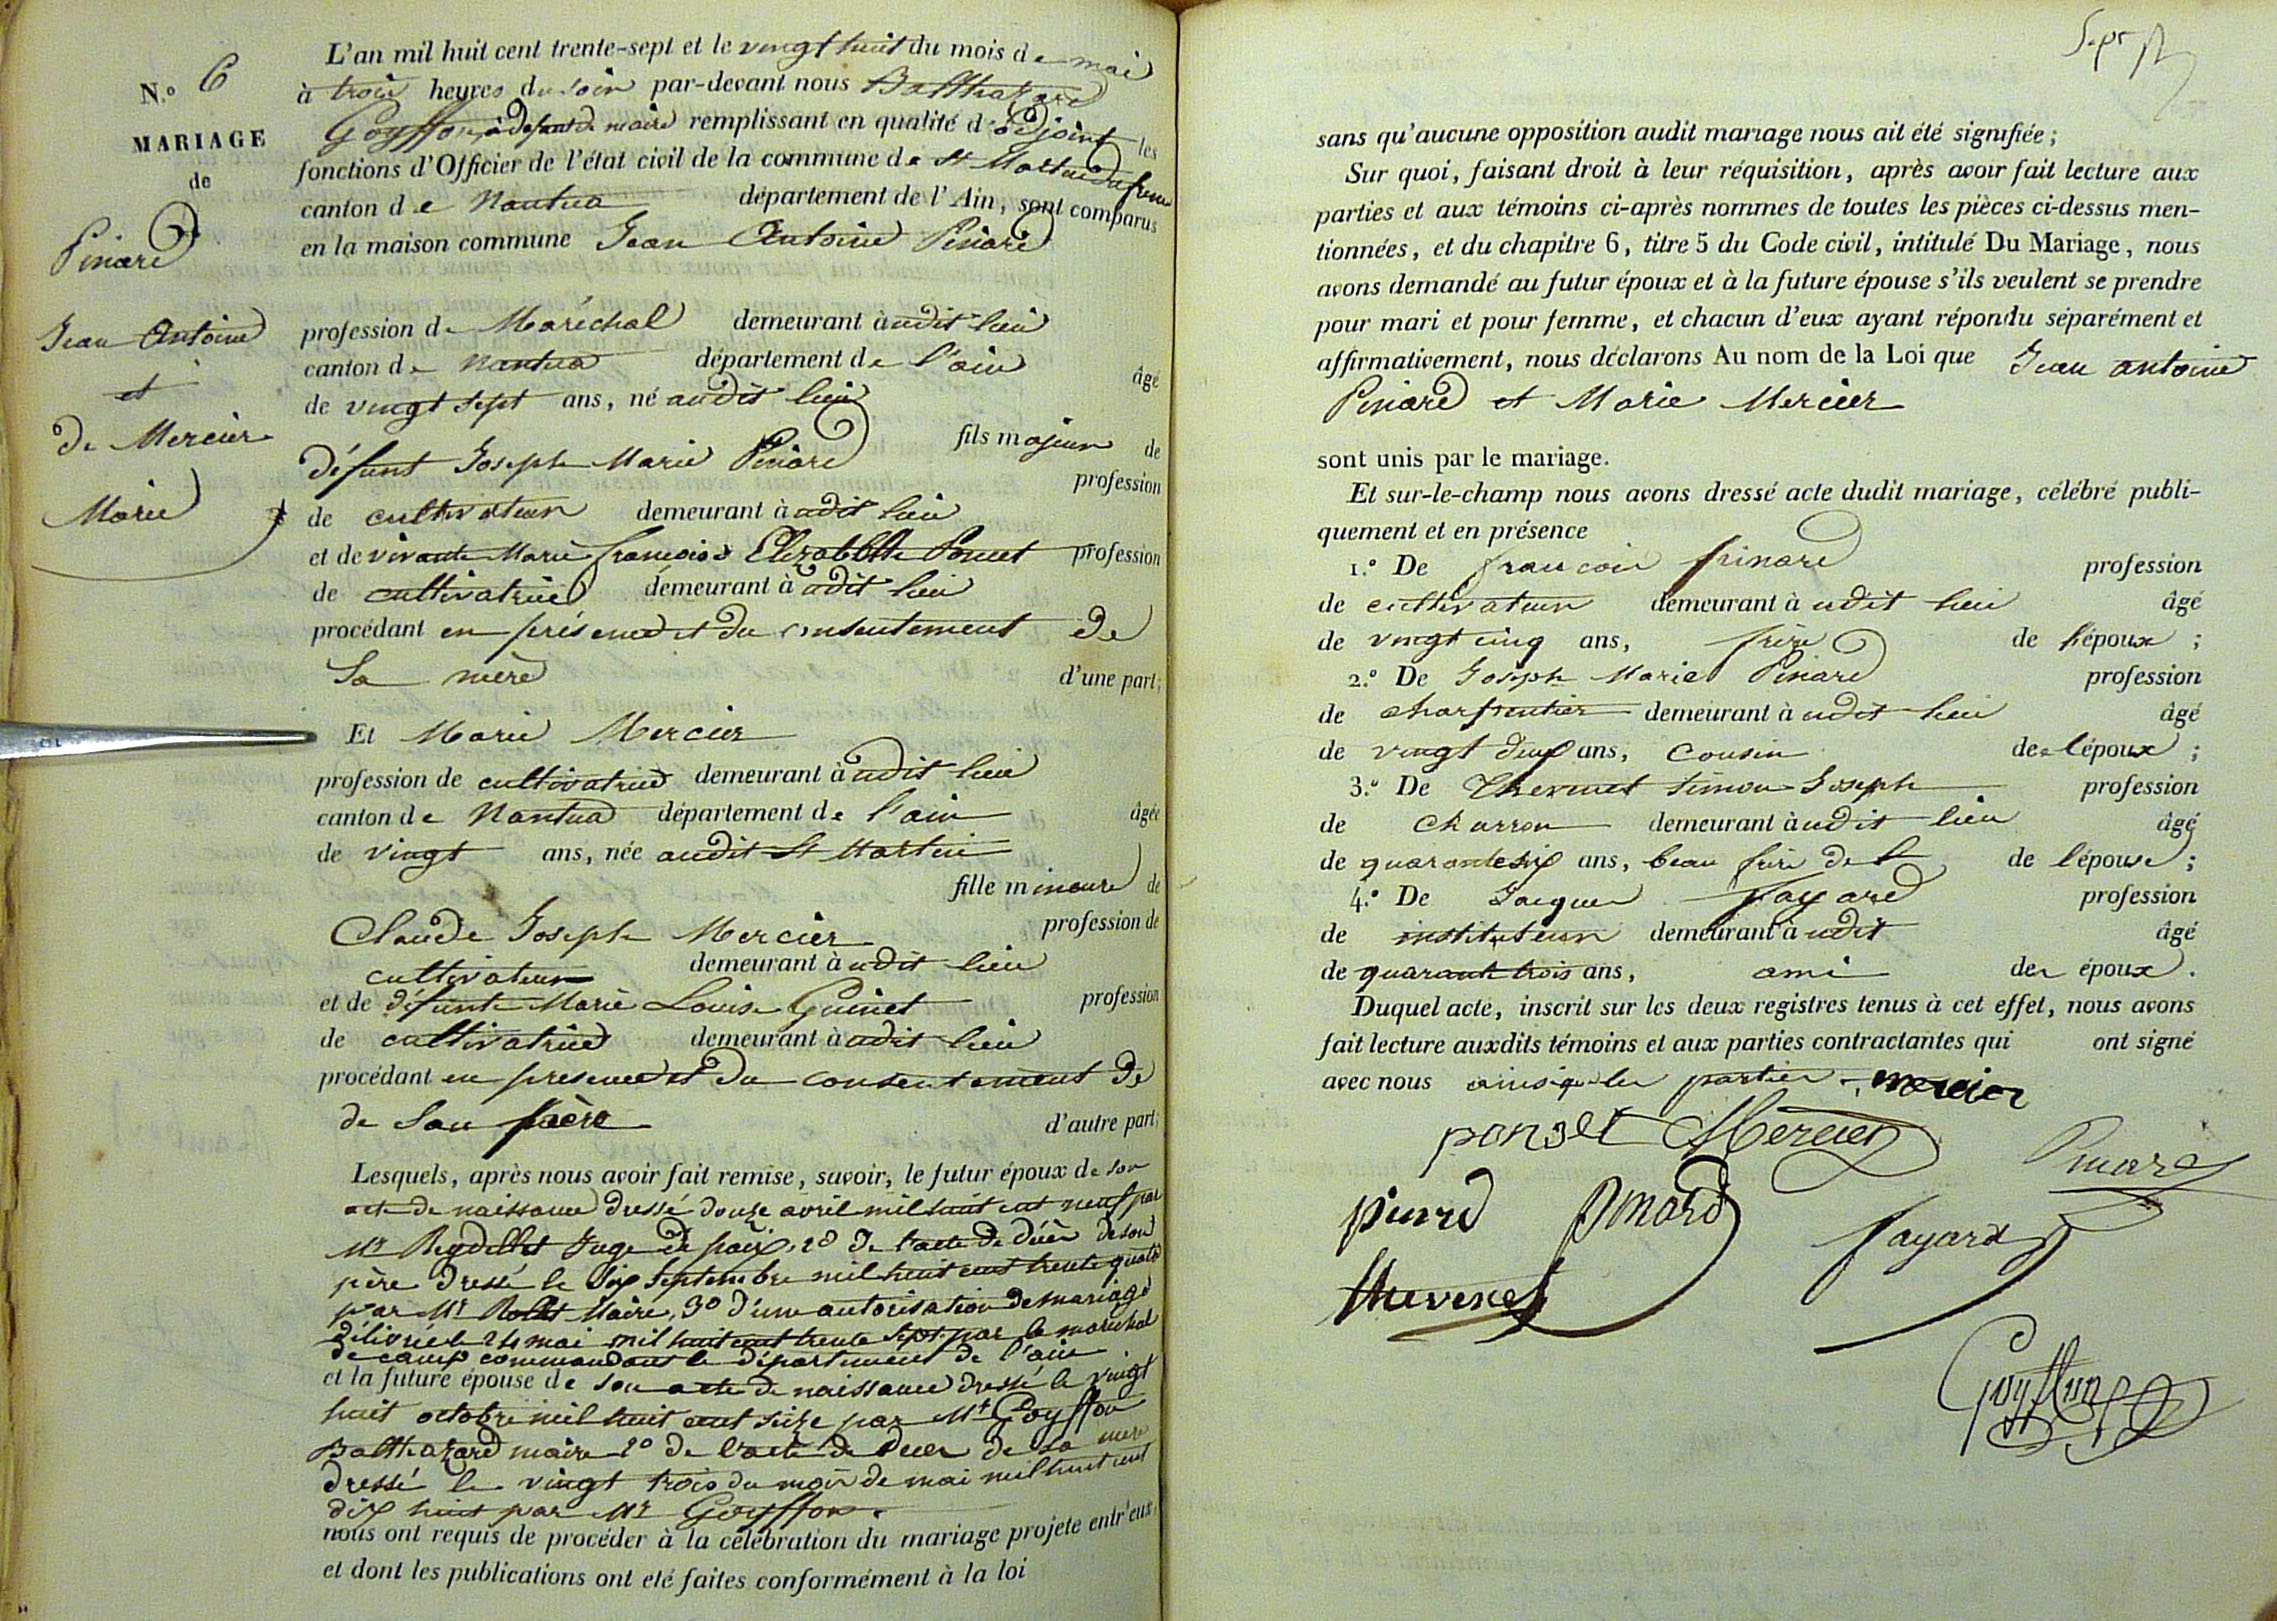 N.o 6
MARIAGE
de
Pinard
Jean Antoine
et
de Mercier
Marie
L'an mil huit cent trente-sept et le vingt huit du mois de mai
à trois heures du soir par-devant nous Balthazard
Goyffon, à défaut de maire remplissant en qualité d'adjoint les
fonctions d'Officier de l'état civil de la commune de St Martin du frene
canton de Nantua département de l'Ain, sont comparus
en la maison commune Jean Antoine Pinard
profession de Maréchal demeurant à udit lieu
canton de Nantua département de l'ain âgé
de vingt sept ans, né audit lieu
fils majeur de
défunt Joseph Marie Pinard profession
de cultivateur demeurant à udit lieu
et de vivante Marie françoise Elizabethe Poncet profession
de cultivatrice demeurant à udit lieu
procédant en présence et du consentement de
Sa mère d'une part;
Et Marie Mercier
profession de cultivatrice demeurant à udit lieu
canton de Nantua département de l'ain âgée
de vingt ans, née audit St Martin
fille mineure de
Claude Joseph Mercier profession de
cultivateur demeurant à udit lieu
et de défunte Marie Louise Guinet profession
de cultivatrice demeurant à udit lieu
procédant en présence et du consentement de
de Son père d'autre part;
Lesquels, après nous avoir fait remise, savoir, le futur époux de son
acte de naissance dressé douze avril mil huit cent neuf par
Mr Reydellet Juge de paix, 2o de l'acte de décès de son
père dressé le Six Septembre mil huit cent trente quatre
par Mr Maire, 3o d'une autorisation de mariage
délivrée le 24 mai mil huit cent trente sept par le maréchal
de camp commandant le département de l'ain
et la future épouse de son acte de naissance dressé le vingt
huit octobre mil huit cent seize par Mr Goyffon
Balthazard maire 2o de l'acte de décès de sa mère
dressé le vingt trois du mois de mai mil huit cent
dix huit par Mr Goyffon.
nous ont requis de procéder à la célébration du mariage projeté entr'eux,
et dont les publications ont été faites conformément à la loi
sans qu'aucune opposition audit mariage nous ait été signifiée;
Sur quoi, faisant droit à leur réquisition, après avoir fait lecture aux
parties et aux témoins ci-après nommés de toutes les pièces ci-dessus men-
tionnées, et du chapitre 6, titre 5 du Code civil, intitulé Du Mariage, nous
avons demandé au futur époux et à la future épouse s'ils veulent se prendre
pour mari et pour femme, et chacun d'eux ayant répondu séparément et
affirmativement, nous déclarons Au nom de la Loi que Jean antoine
Pinard et Marie Mercier
sont unis par le mariage.
Et sur-le-champ nous avons dressé acte dudit mariage, célébré publi-
quement et en présence
1.o De francois pinard profession
de cultivateur demeurant à udit lieu âgé
de vingt cinq ans, frère de l'époux ;
2.o De Joseph Marie Pinard profession
de charpentier demeurant à udit lieu âgé
de vingt deux ans, cousin de l'époux ;
3.o De Thevenet Simon Joseph profession
de charron demeurant à udit lieu âgé
de quarante six ans, beau frère de l de l'épouse ;
4.o De Jacques fayard profession
de instituteur demeurant à udit âgé
de quarante trois ans, ami des époux.
Duquel acte, inscrit sur les deux registres tenus à cet effet, nous avons
fait lecture auxdits témoins et aux parties contractantes qui ont signé
avec nous ainsi que les parties. mercier
ponset Mercier
Pinard
pinard pinard
fayard
thevenet
Goyffon